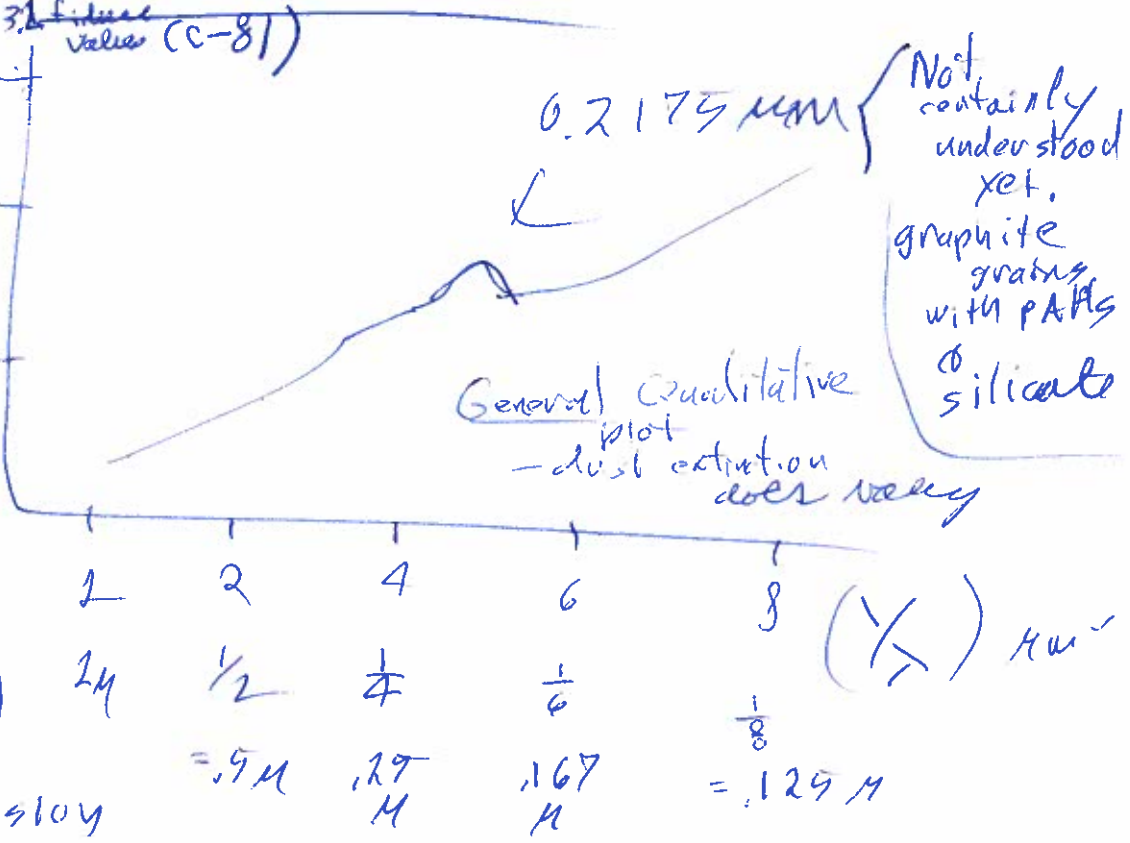 3.1 fiducial
values (C-81)
0.2175 μm
Not
certainly
understood
yet.
graphite
grains
with PAHs
&
silicate
General Qualitative
plot
- dust extinction
does vary
1 2 4 6 8 (1/λ) μm⁻
1μ 1/2 1/4 1/6 1/8
=.5μ .25 .167 =.125μ
μ μ